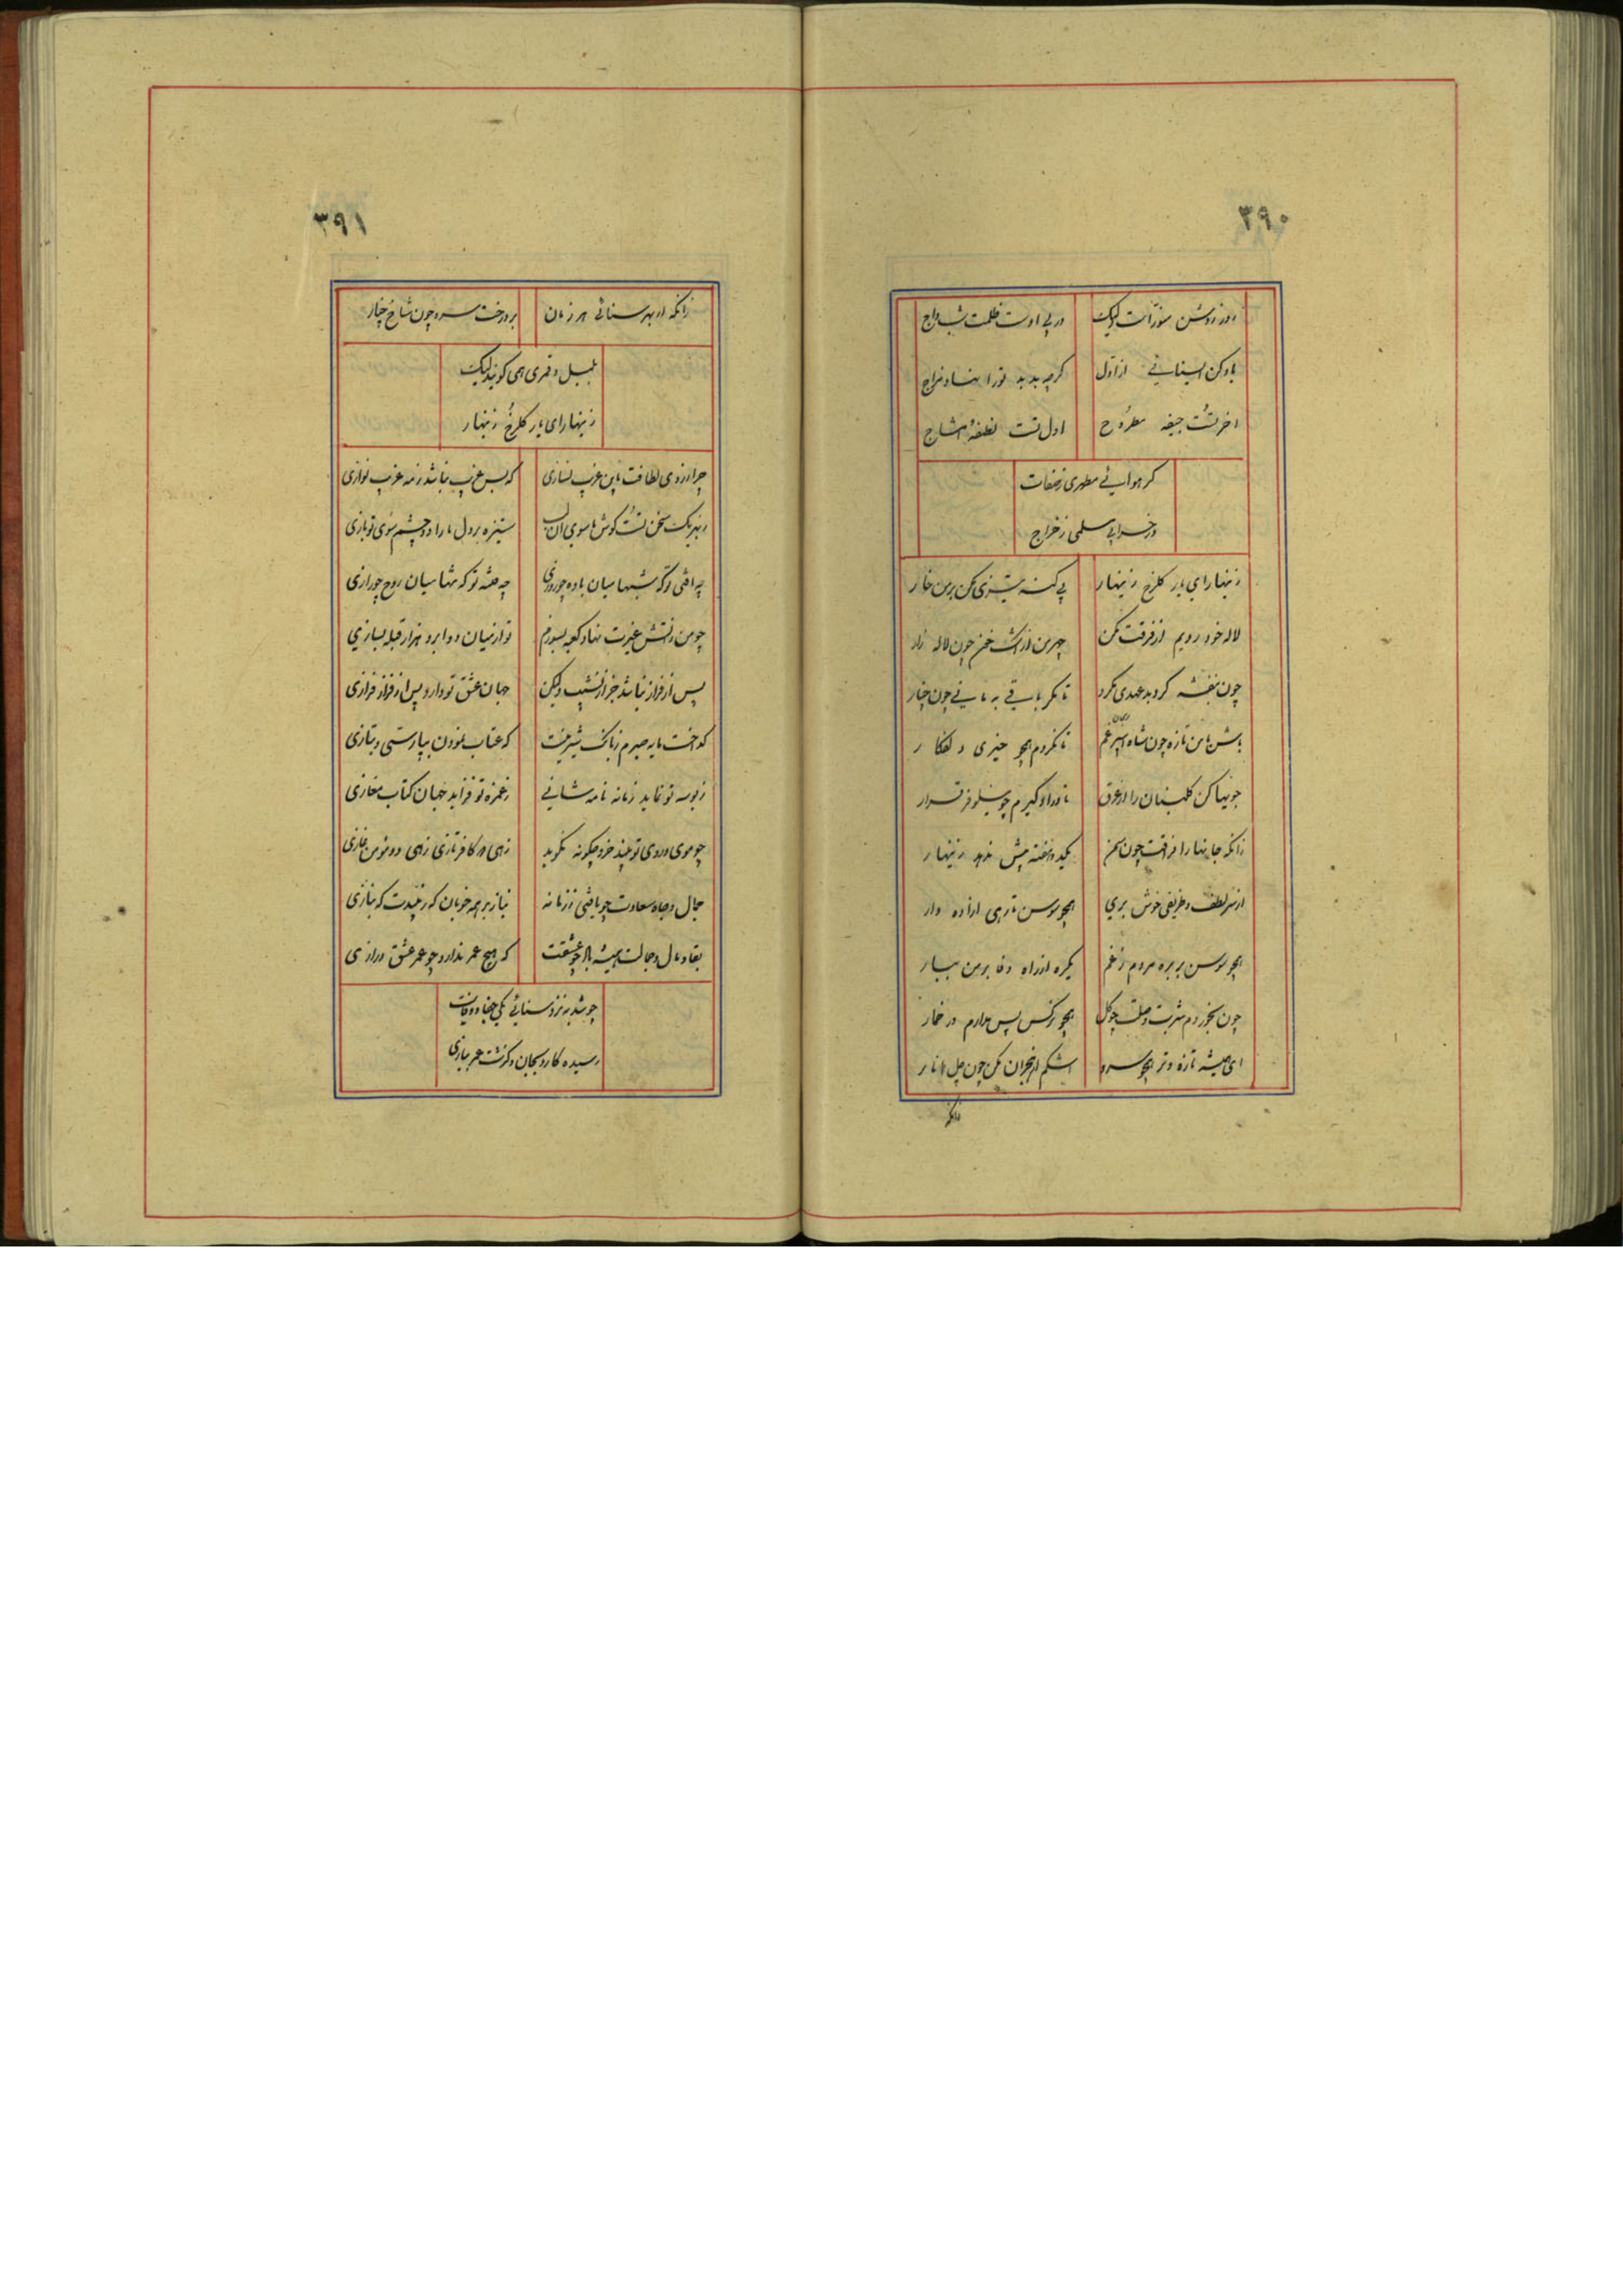 ۳۹۰
روز روشن منور است ولیک در پی اوست ظلمت شب داج
یاد کن ای سنایی از اول کرچه بدبد تورا نهاد و مزاج
اخر تست جیفه مطروح اول تست نطفهٔ امشاج
کر هوایی مطهری ز صفات
در سرایی مسلمی ز خراج
زینهار ای یار کلرخ زینهار بی کنه تیزی مکن بر من خار
لاله خود رویم از فرقت مکن چهر من از اشک خون چون لاله زار
چون بنفشه کرد بد عهدی مکرد تا نکر باقی به مانی چون چنار
باش با من تازه چون شاه اسپرغم تا نکردم همچو خیری دلفکار
جویها کن کلبنان را از عرق تا درو گیرم چو نیلوفر قرار
زانکه جانها را فراقت چون سمن یکدو هفته بیش ندهد زینهار
از سر لطف و ظریفی خوش بزی همچو سوسن تازه ای ازاده وار
همچو سوسن بر بره مردم زغم یکره از راه وفا بر من ببار
چون نخوردم شربت وصلت چو کل همچو نرکس پس مدارم در خمار
ای همیشه تازه و تر همچو سرو اشکم از هجران مکن چون گل انار
زانکه
۳۹۱
زانکه از بهر سنائی هر زمان بر درخت سرو چون شاخ چنار
بلبل و قمری همی کویند لیک
زینهار ای یار کلرخ زینهار
چرا ز روی لطافت باین غریب نسازی که بس غریب نباشد ز مه غریب نوازی
ز بهر یک سخن تست کوش ما سوی ان لب ستیزه بر دل ما را دو چشم سوی تو بازی
چه افتی تو که شبها میان باده چو روزی چه فتنه تو که شبها میان روح چو رازی
چو من ز اتش غیرت نهاد کعبه بسوزم تو از میان دو ابرو هزار قبله بسازی
پس از فراز نباشد جز از نشیب ولیکن جهان عشق تو دارد پس از فراز فرازی
کداخت مایه صبرم ز بانک شیر عنیت که عتاب نمودن بپارسی و بتازی
ز بوسه تو نماید زمانه نامه شانی ز غمزه تو فزاید جهان کتاب مغازی
چو موی و روی تو بیند خرد چکونه نکوید زهی دو کافر تازی زهی دو مومن غازی
جمال و جاه سعادت چو یافتی ز زمانه بناز بر همه خوبان که زیبدت که بنازی
بقاد مال و جمالت همیشه باد چو عشقت که هیچ عمر ندارد چو عمر عشق درازی
چو شد بنزد سنائی یکی جفا و وفایت
رسیده کارد بجان و گذشت عمر ببازی